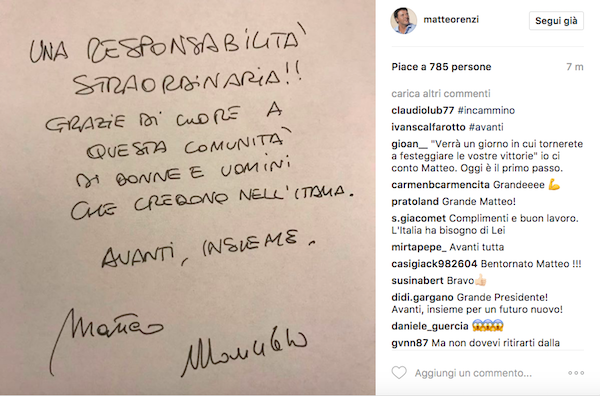 UNA RESPONSABILITÀ
STRAORDINARIA!!
GRAZIE DI CUORE A
QUESTA COMUNITÀ
DI DONNE E UOMINI
CHE CREDONO NELL'ITALIA.
AVANTI, INSIEME.
Matteo
matteorenzi
Segui già
Piace a 785 persone
7 m
carica altri commenti
claudiolub77 #incammino
ivanscalfarotto #avanti
gioan__ "Verrà un giorno in cui tornerete
a festeggiare le vostre vittorie" io ci
conto Matteo. Oggi è il primo passo.
carmenbcarmencita Grandeeee 💪
pratoland Grande Matteo!
s.giacomet Complimenti e buon lavoro.
L'Italia ha bisogno di Lei
mirtapepe_ Avanti tutta
casigiack982604 Bentornato Matteo !!!
susinabert Bravo👍🏻
didi.gargano Grande Presidente!
Avanti, insieme per un futuro nuovo!
daniele_guercia 😱😱😱
gvnn87 Ma non dovevi ritirarti dalla
Aggiungi un commento...